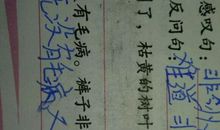 感叹句：
反问句：难道
了，枯黄的树叶
有毛病。裤子非
没有毛病